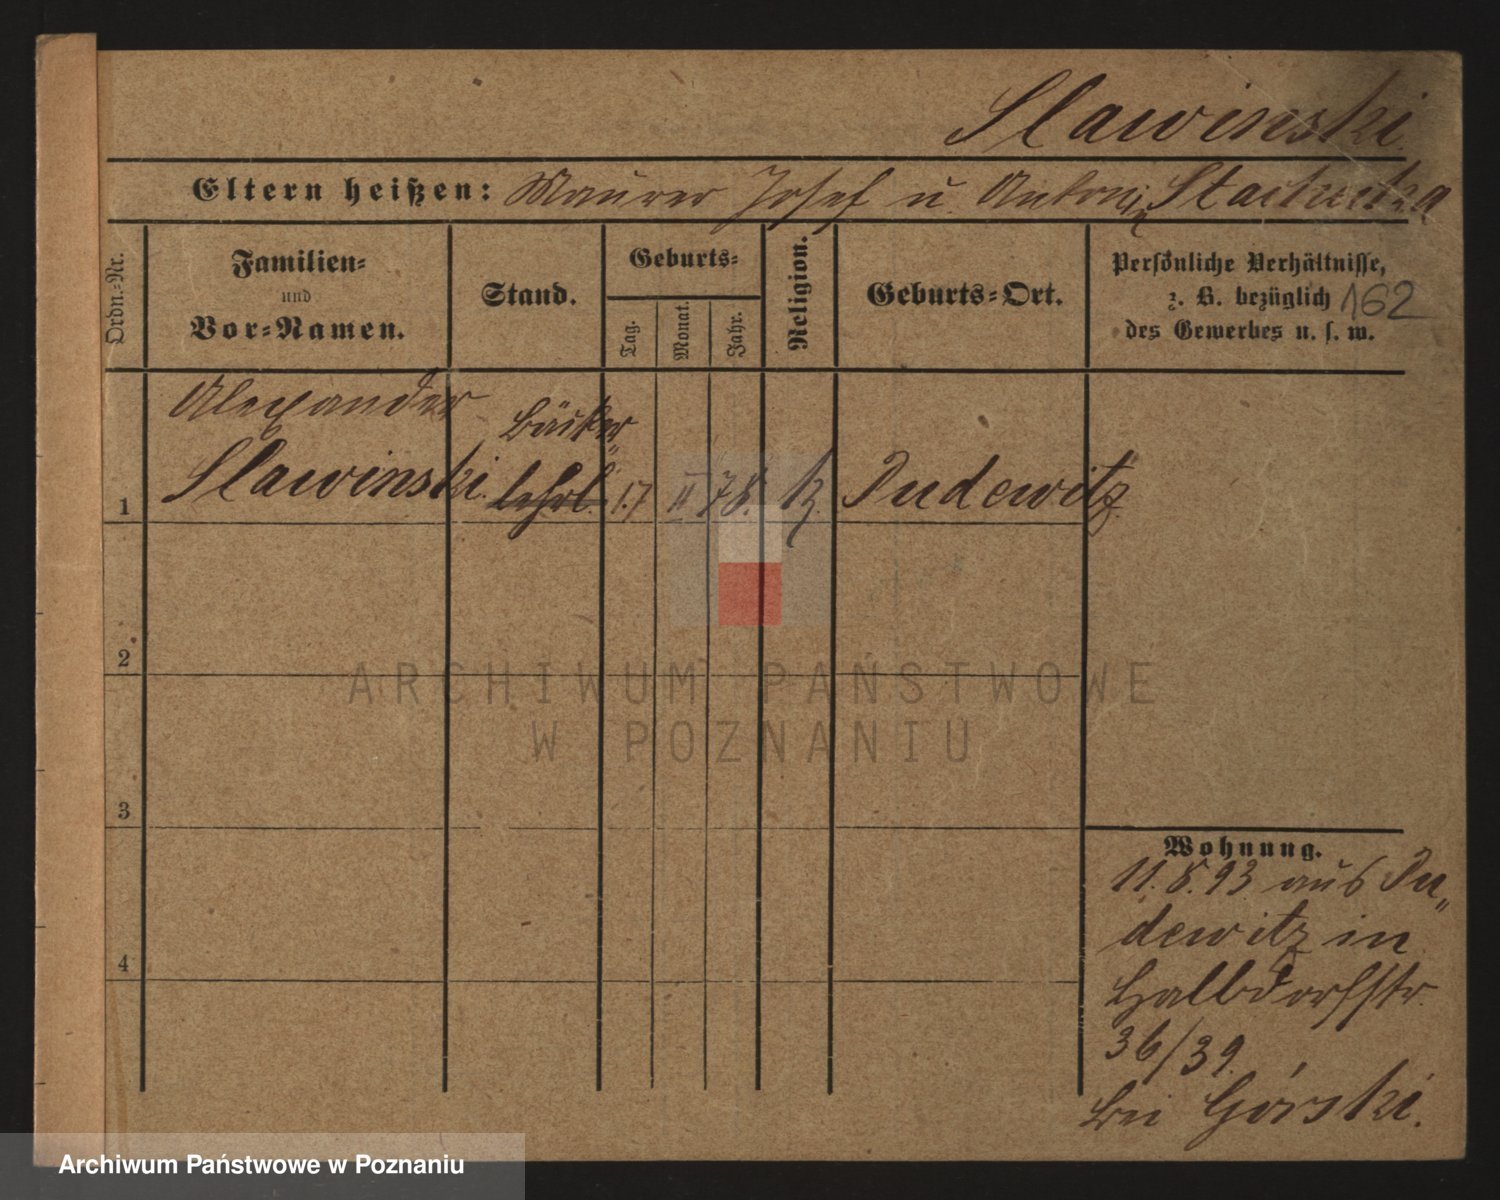 Slawinski.
Eltern heißen: Maurer Josef u. Antonie Stachecka
Ordn.-Nr.
Familien-
und
Vor-Namen.
Stand.
Geburts-
Tag.
Monat.
Jahr.
Religion.
Geburts-Ort.
Persönliche Verhältnisse,
z. B. bezüglich
des Gewerbes u. s. w.
162
Alexander
Slawinski.
Bäcker
lehrl.
1 17 II 78. k. Pudewitz.
2
3
4
Wohnung.
11.8.93 aus Pu„
dewitz in
Halbdorfstr.
36/39.
bei Górski.
ARCHIWUM PAŃSTWOWE
W POZNANIU
Archiwum Państwowe w Poznaniu